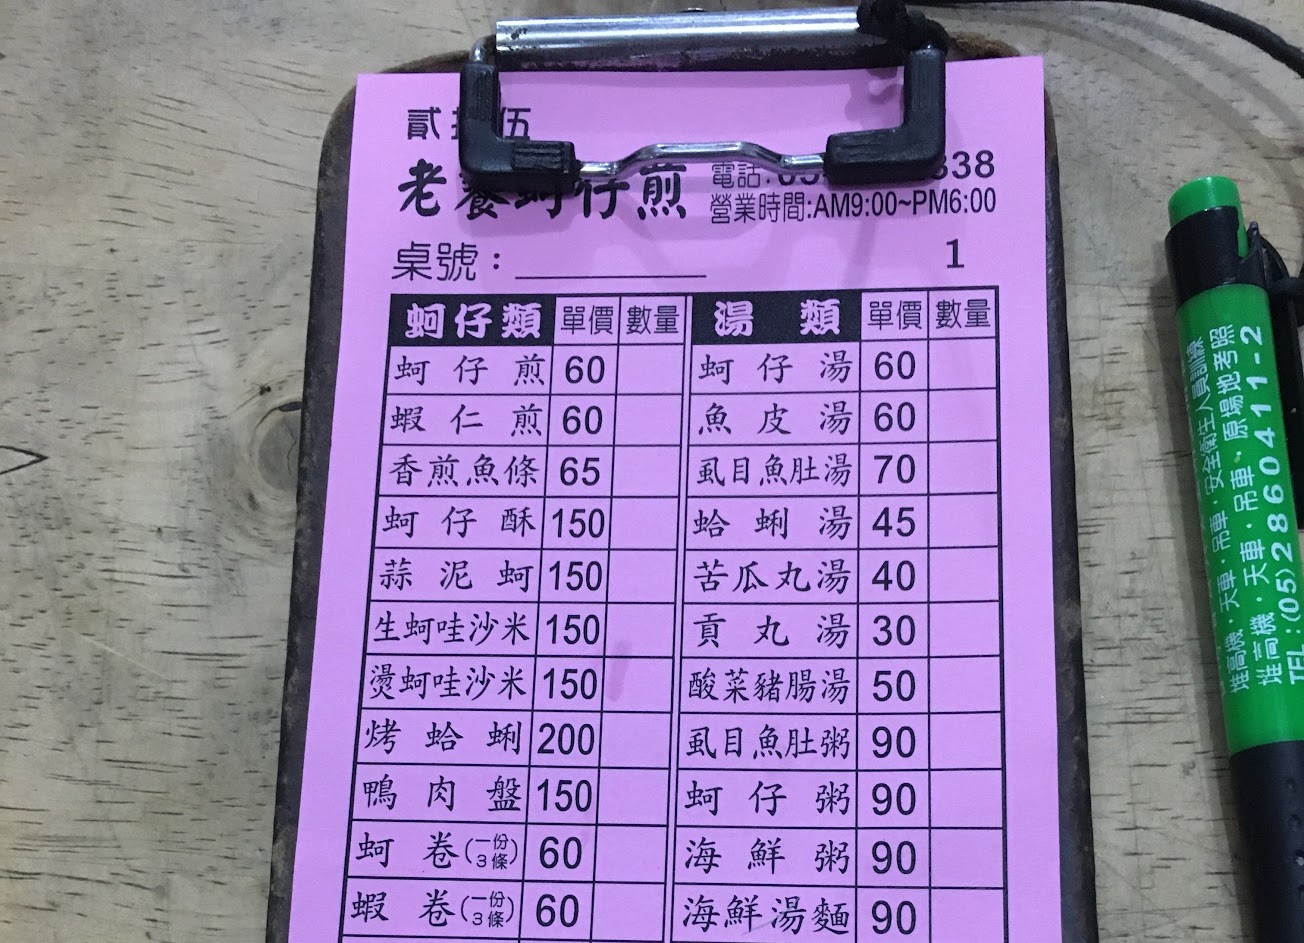 貳 伍
老養蚵仔煎
電話: 338
營業時間:AM9:00~PM6:00
桌號：
1
蚵仔類 單價 數量 湯類 單價 數量
蚵仔煎 60 蚵仔湯 60
蝦仁煎 60 魚皮湯 60
香煎魚條 65 虱目魚肚湯 70
蚵仔酥 150 蛤蜊湯 45
蒜泥蚵 150 苦瓜丸湯 40
生蚵哇沙米 150 貢丸湯 30
燙蚵哇沙米 150 酸菜豬腸湯 50
烤蛤蜊 200 虱目魚肚粥 90
鴨肉盤 150 蚵仔粥 90
蚵卷(一份3條) 60 海鮮粥 90
蝦卷(一份3條) 60 海鮮湯麵 90
堆高機·天車·吊車·安全衛生人員訓練
堆高機·天車·吊車·原場地考照
TEL:(05)2860411-2